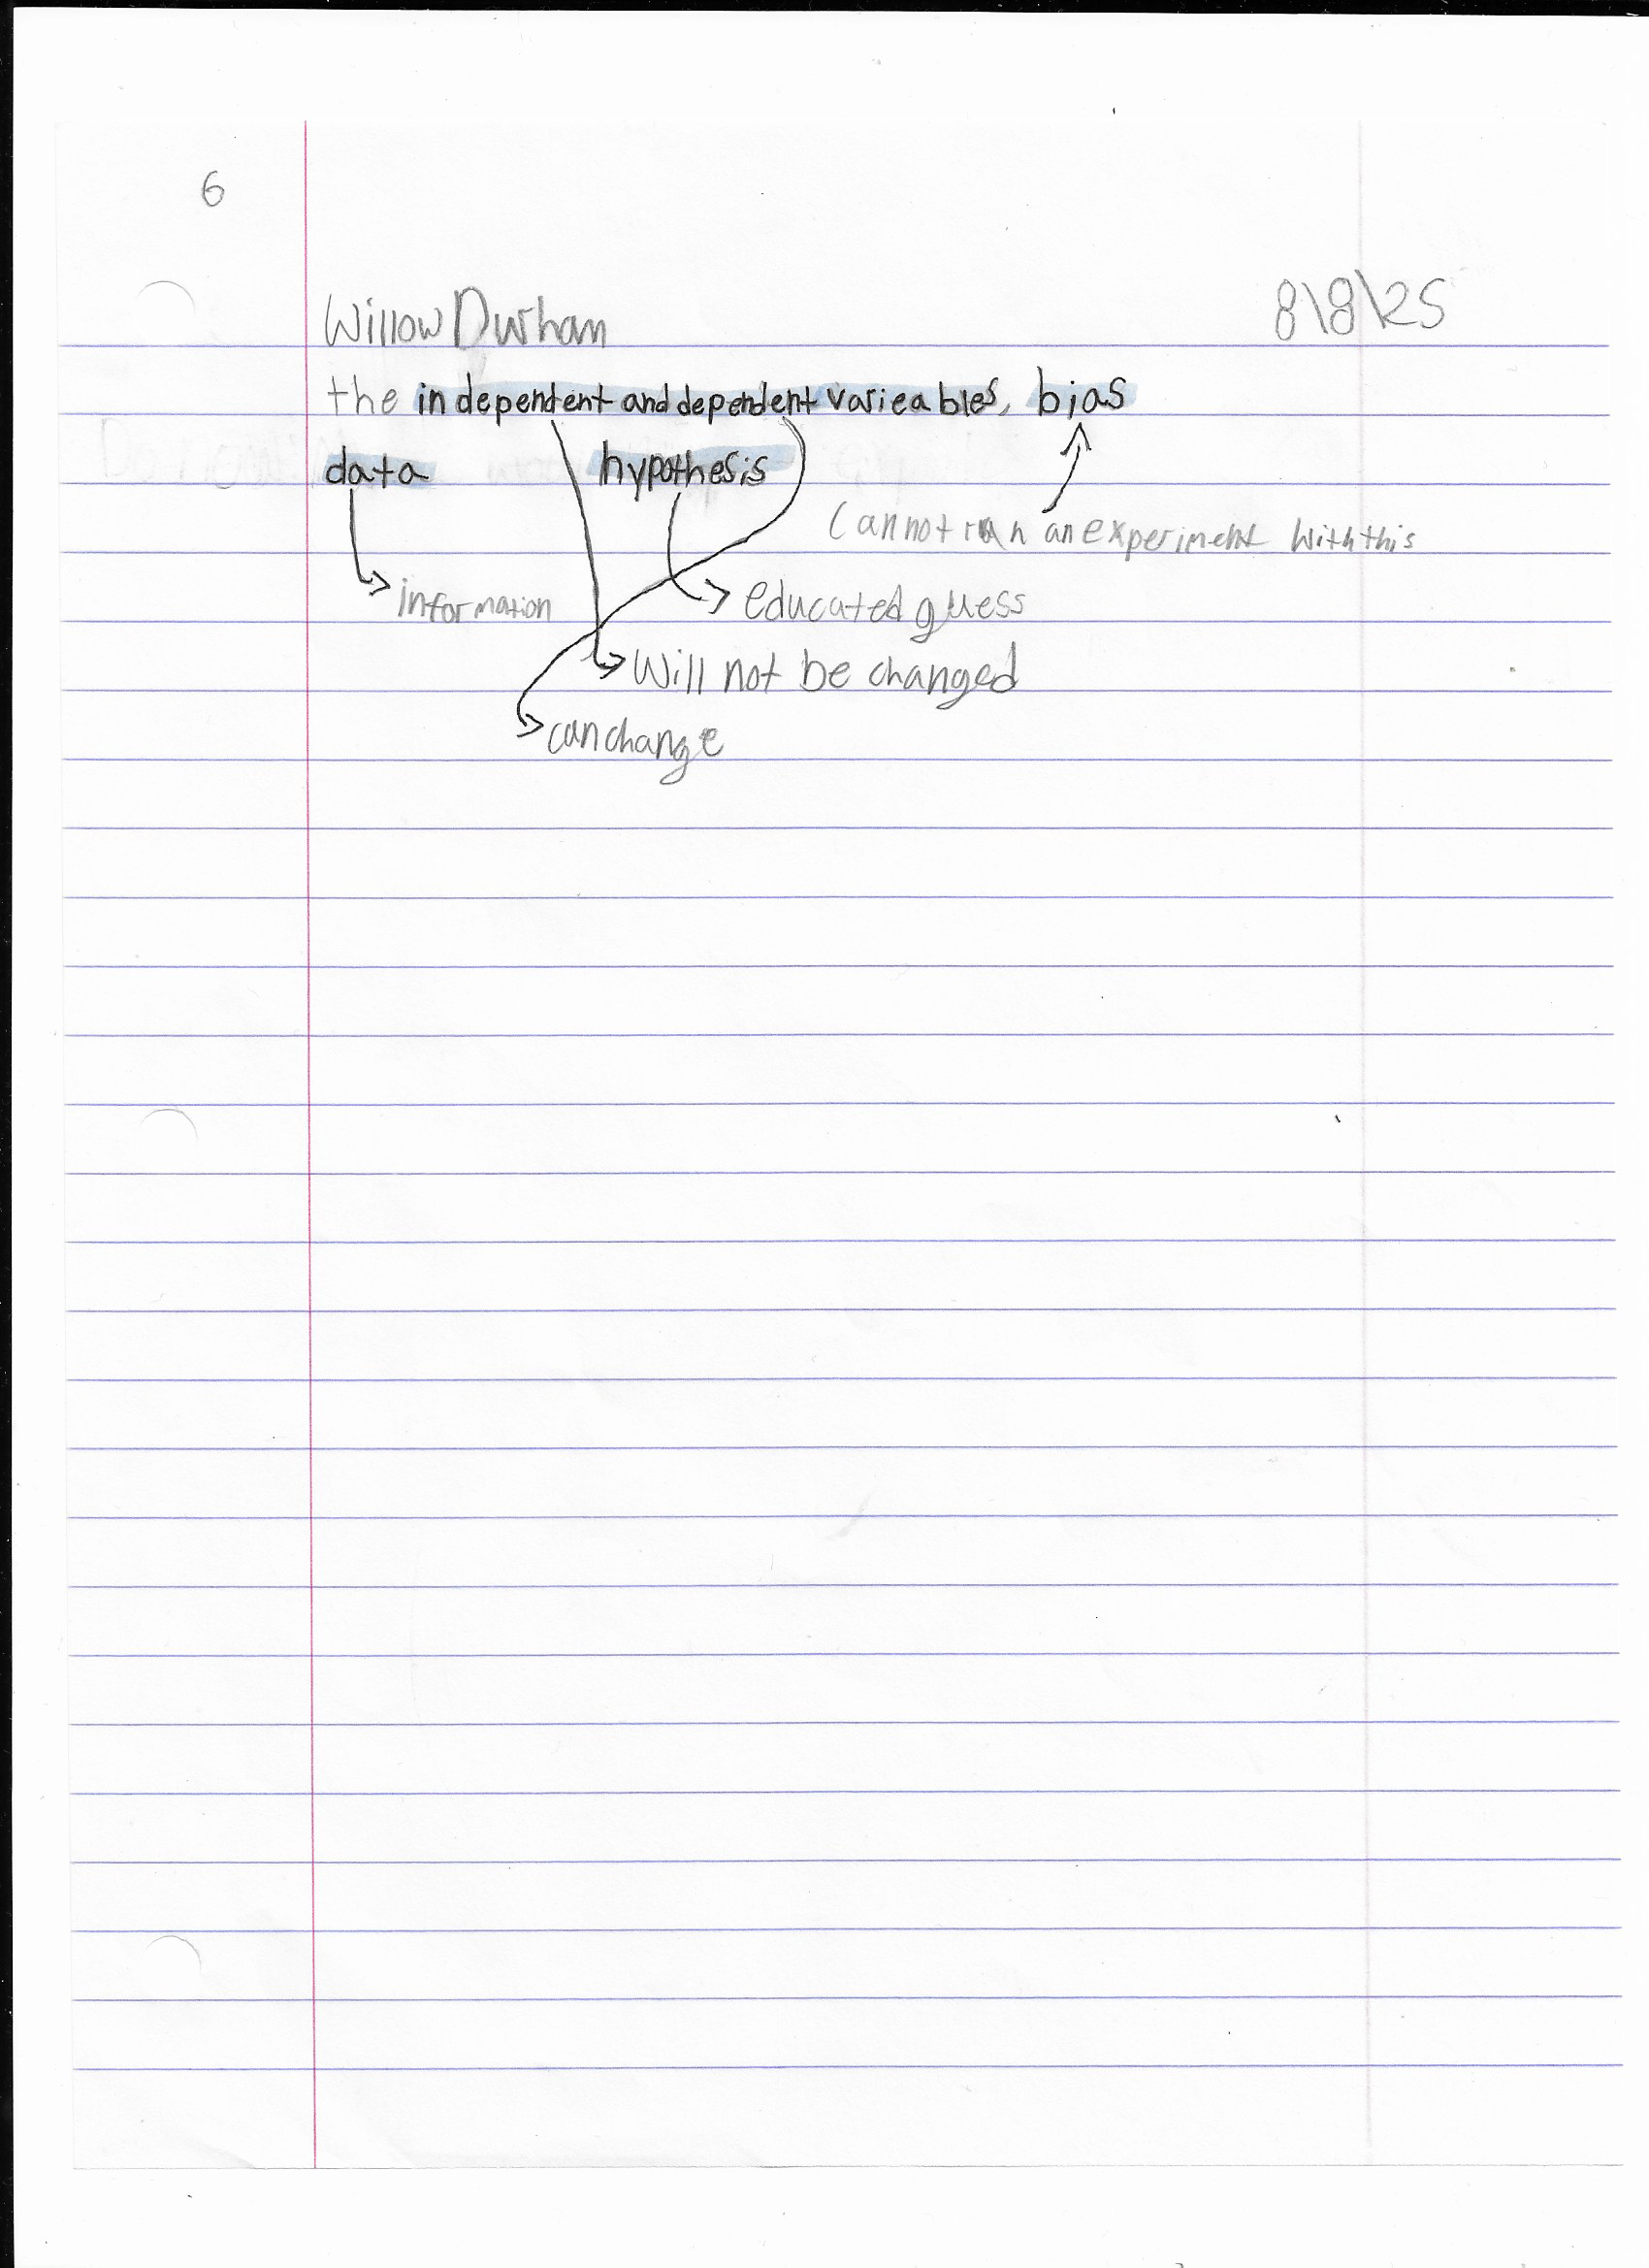 6
Willow Durham 8\8\25
the independent and dependent varieables, bias
data hypothesis
Cannot run an experiment with this
information educated guess
Will not be changed
can change